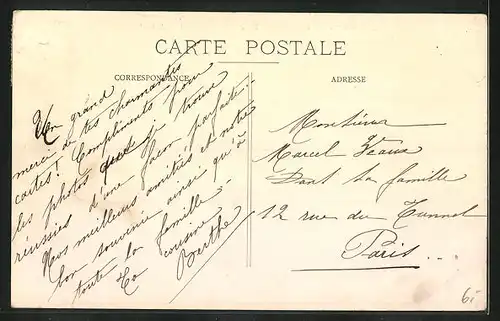 CARTE POSTALE
CORRESPONDANCE
ADRESSE
Un grand
merci de tes charmantes
cartes! Compliments pour
les photos que je trouve
réussies d'une façon parfaite.
Nos meilleurs amitiés et notre
bon souvenir ainsi qu'à
toute la famille.
Ta cousine
Berthe
Monsieur
Marcel
famille
12 rue du Tunnel
Paris
6.